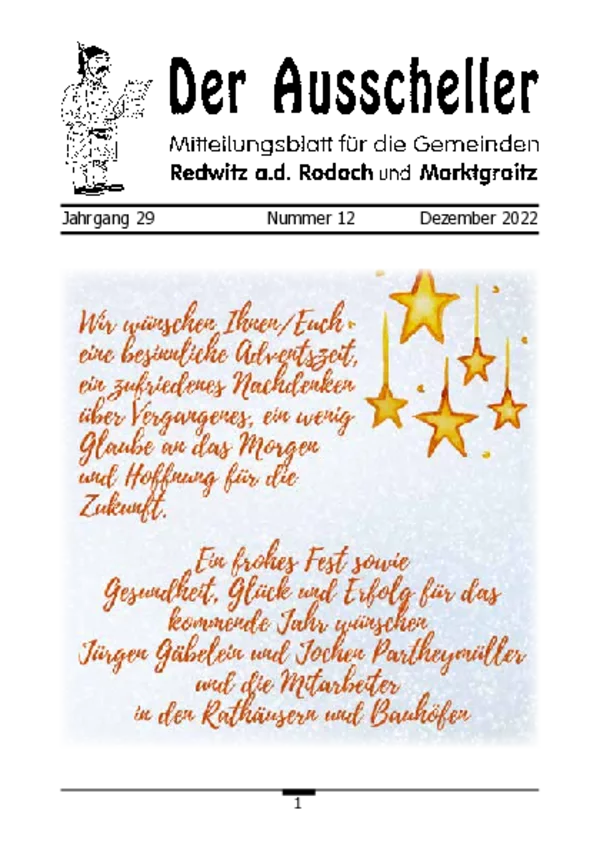 Der Ausscheller
Mitteilungsblatt für die Gemeinden
Redwitz a.d. Rodach und Marktgraitz
Jahrgang 29 Nummer 12 Dezember 2022
Wir wünschen Ihnen/Euch
eine besinnliche Adventszeit,
ein zufriedenes Nachdenken
über Vergangenes, ein wenig
Glaube an das Morgen
und Hoffnung für die
Zukunft.
Ein frohes Fest sowie
Gesundheit, Glück und Erfolg für das
kommende Jahr wünschen
Jürgen Gäbelein und Jochen Partheymüller
und die Mitarbeiter
in den Rathäusern und Bauhöfen
1